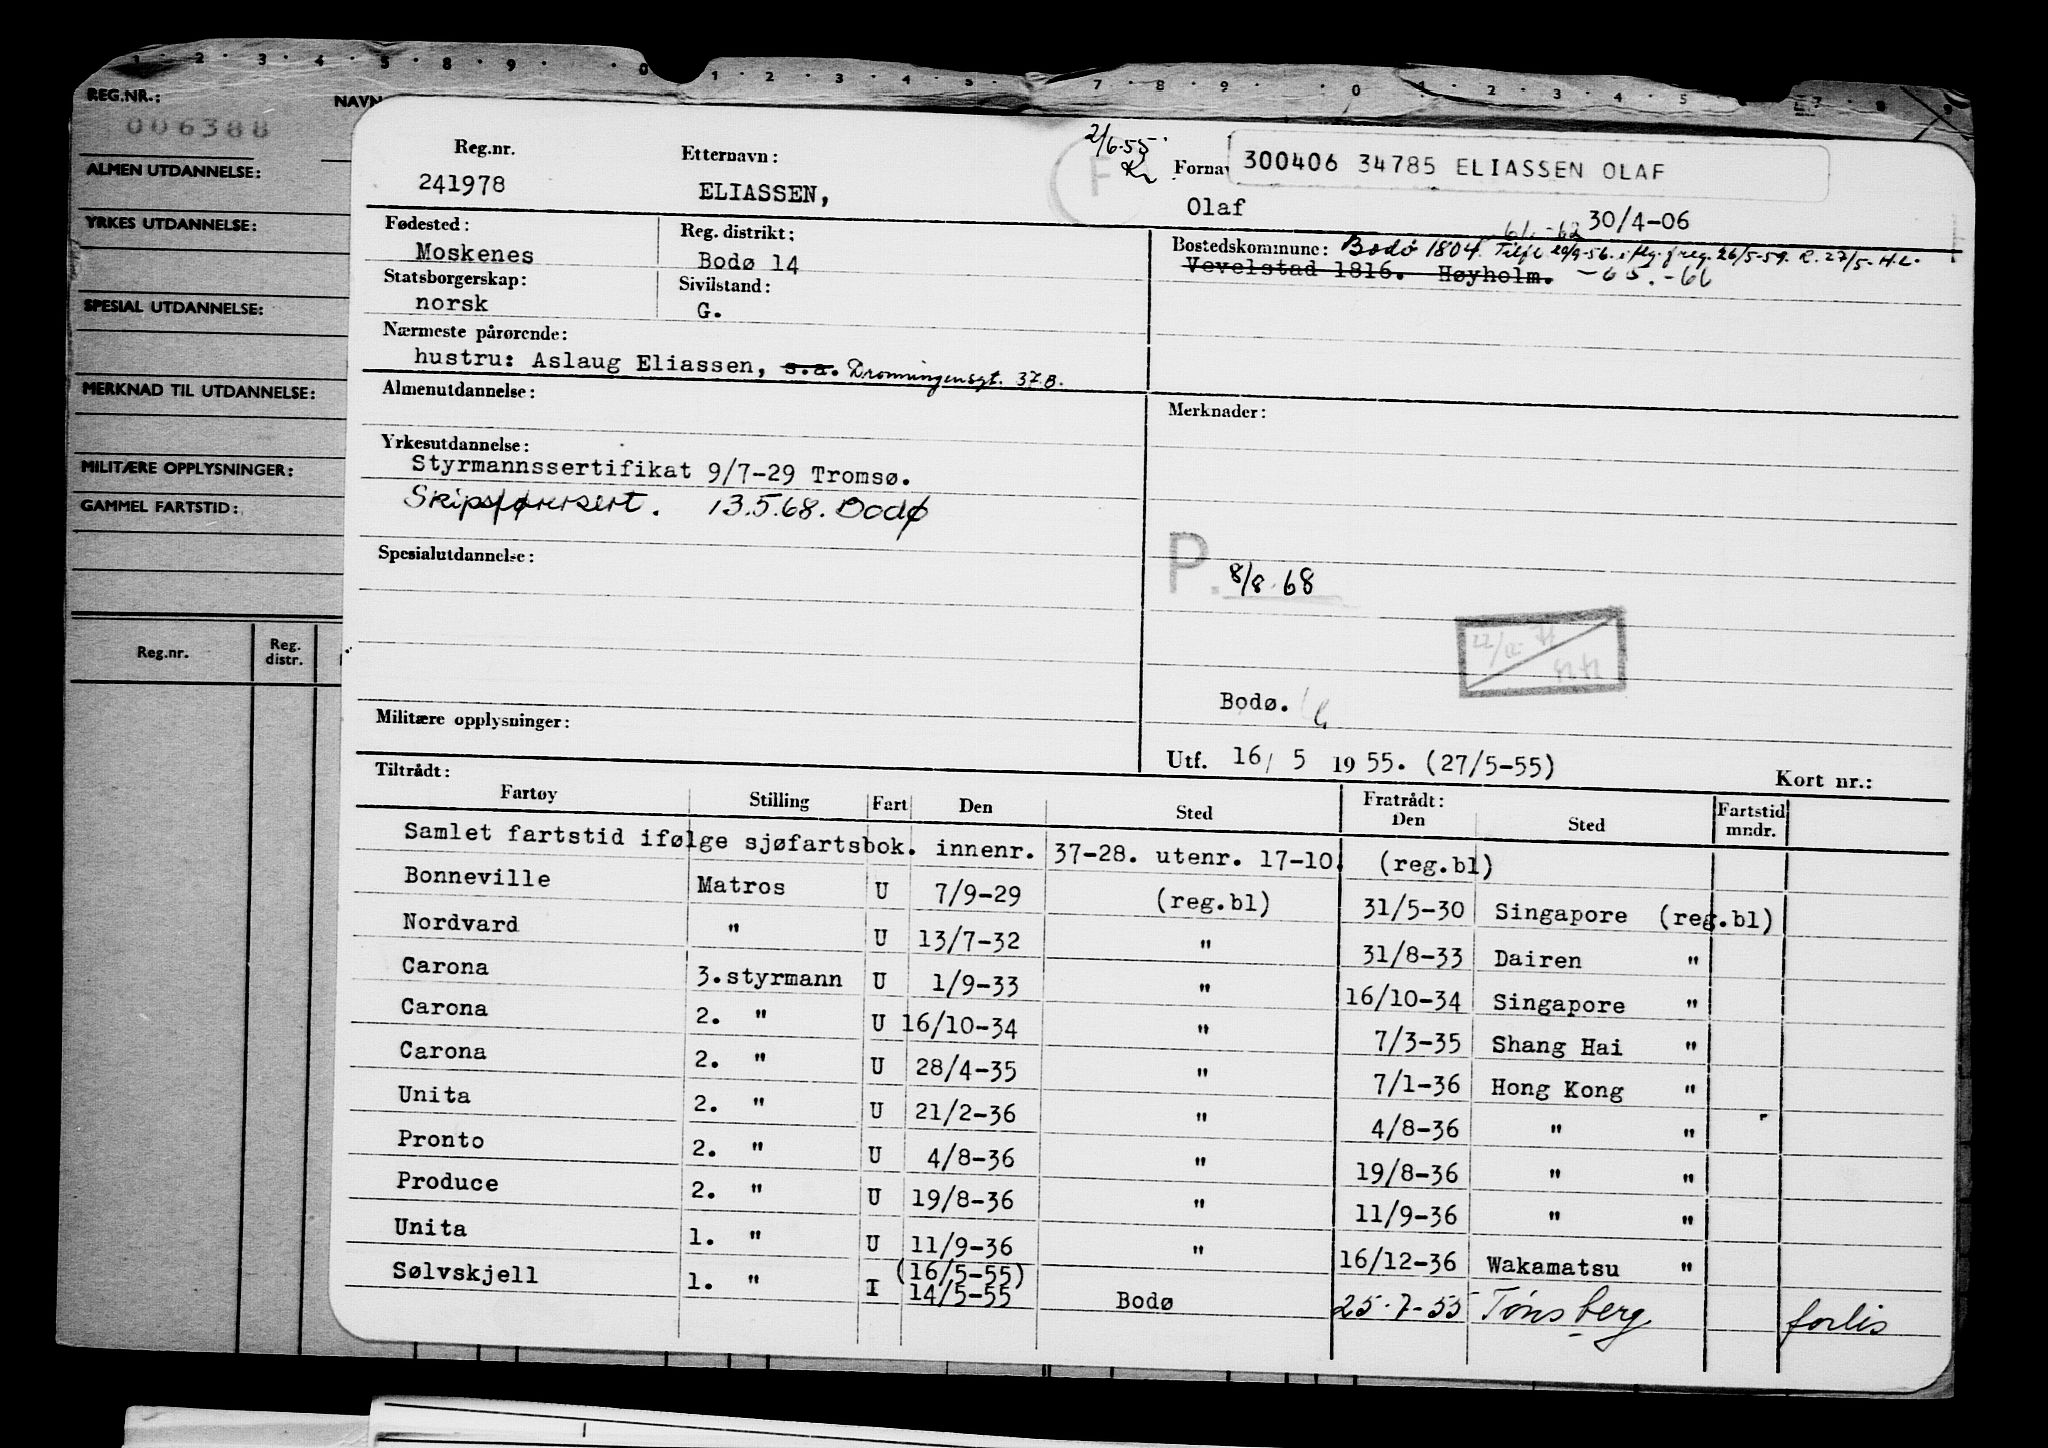 1 · 2 · 3 · 4 · 5 · 8 · 9 · · 0 · 1 · 2 · 3 · 4 · 5 · 7 · 8 · 9 · · 0 · 1 · 2 · 3 · 4 · 5 7 · 8 · 9
REG.NR.: NAVN
006388
ALMEN UTDANNELSE:
YRKES UTDANNELSE:
SPESIAL UTDANNELSE:
MERKNAD TIL UTDANNELSE:
MILITÆRE OPPLYSNINGER:
GAMMEL FARTSTID:
Reg.nr. Reg. distr.
Reg.nr. Etternavn: 2/6-55 F Kr Fornav 300406 34785 ELIASSEN OLAF
241978 ELIASSEN, Olaf 30/4-06
61.-62
Fødested: Reg. distrikt: Bostedskommune: Bodø 1804. 20/9-56. 26/5-59. R. 27/5. H.L.
Moskenes Bodø 14 Vevelstad 1816. Høyholm. -65.-66
Statsborgerskap: Sivilstand:
norsk G.
Nærmeste pårørende:
hustru: Aslaug Eliassen, s.a. Dronningensgt. 37.B.
Almenutdannelse: Merknader:
Yrkesutdannelse:
Styrmannssertifikat 9/7-29 Tromsø.
Skipsførersert. 13.5.68. Bodø
Spesialutdannelse:
P. 8/8.68
Bodø.
Militære opplysninger:
Utf. 16/ 5 1955. (27/5-55) Kort nr.:
Tiltrådt: Fratrådt:
Fartøy Stilling Fart Den Sted Den Sted Fartstid mndr.
Samlet fartstid ifølge sjøfartsbok. innenr. 37-28. utenr. 17-10. (reg.bl)
Bonneville Matros U 7/9-29 (reg.bl) 31/5-30 Singapore (reg.bl)
Nordvard " U 13/7-32 " 31/8-33 Dairen "
Carona 3.styrmann U 1/9-33 " 16/10-34 Singapore "
Carona 2. " U 16/10-34 " 7/3-35 Shang Hai "
Carona 2. " U 28/4-35 " 7/1-36 Hong Kong "
Unita 2. " U 21/2-36 " 4/8-36 " "
Pronto 2. " U 4/8-36 " 19/8-36 " "
Produce 2. " U 19/8-36 " 11/9-36 " "
Unita 1. " U 11/9-36 " 16/12-36 Wakamatsu "
(16/5-55)
Sølvskjell 1. " I 14/5-55 Bodø 25-7-55 Tønsberg forlis